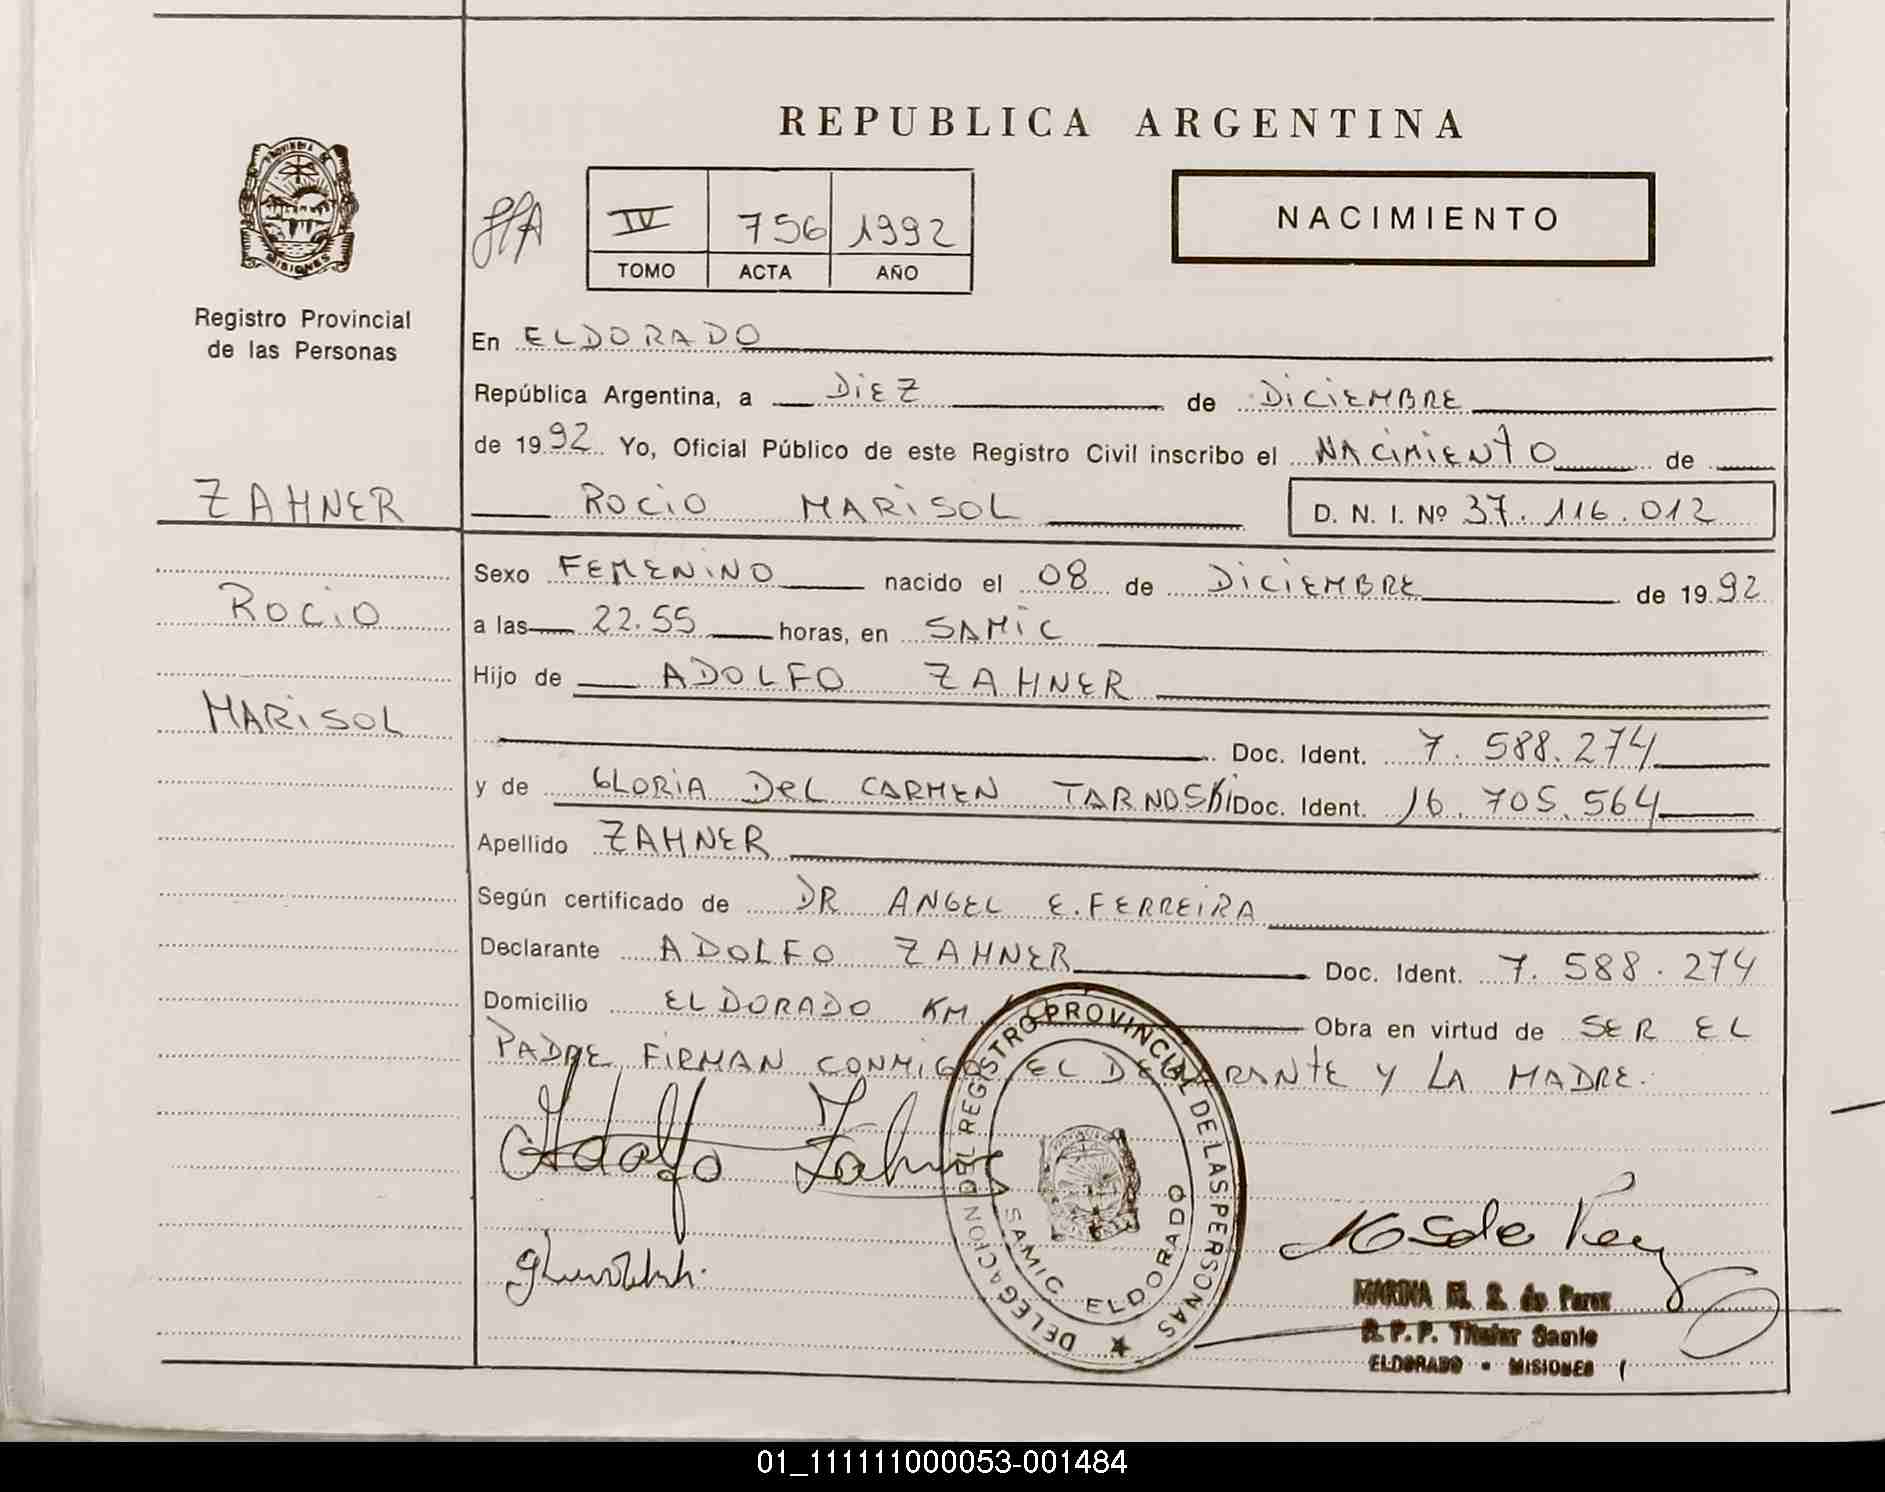 REPUBLICA ARGENTINA
PROVINCIA DE
MISIONES
IV 756 1992
TOMO ACTA AÑO
NACIMIENTO
Registro Provincial
de las Personas
ZAHNER
ROCIO
MARISOL
En ELDORADO
República Argentina, a DIEZ de DICIEMBRE
de 1992 Yo, Oficial Público de este Registro Civil inscribo el NACIMIENTO de
ROCIO MARISOL D. N. I. Nº 37.116.012
Sexo FEMENINO nacido el 08 de DICIEMBRE de 1992
a las 22.55 horas, en SAMIC
Hijo de ADOLFO ZAHNER
Doc. Ident. 7.588.274
y de GLORIA DEL CARMEN TARNOSKI Doc. Ident. 16.705.564
Apellido ZAHNER
Según certificado de DR ANGEL E. FERREIRA
Declarante ADOLFO ZAHNER Doc. Ident. 7.588.274
Domicilio ELDORADO KM Obra en virtud de SER EL
PADRE, FIRMAN CONMIGO EL DECLARANTE Y LA MADRE.
Adolfo Zahner
DELEGACION DEL REGISTRO PROVINCIAL DE LAS PERSONAS
SAMIC ELDORADO
MARINA M. S. de Perez
R.P.P. Titular Samic
ELDORADO - MISIONES
01_111111000053-001484